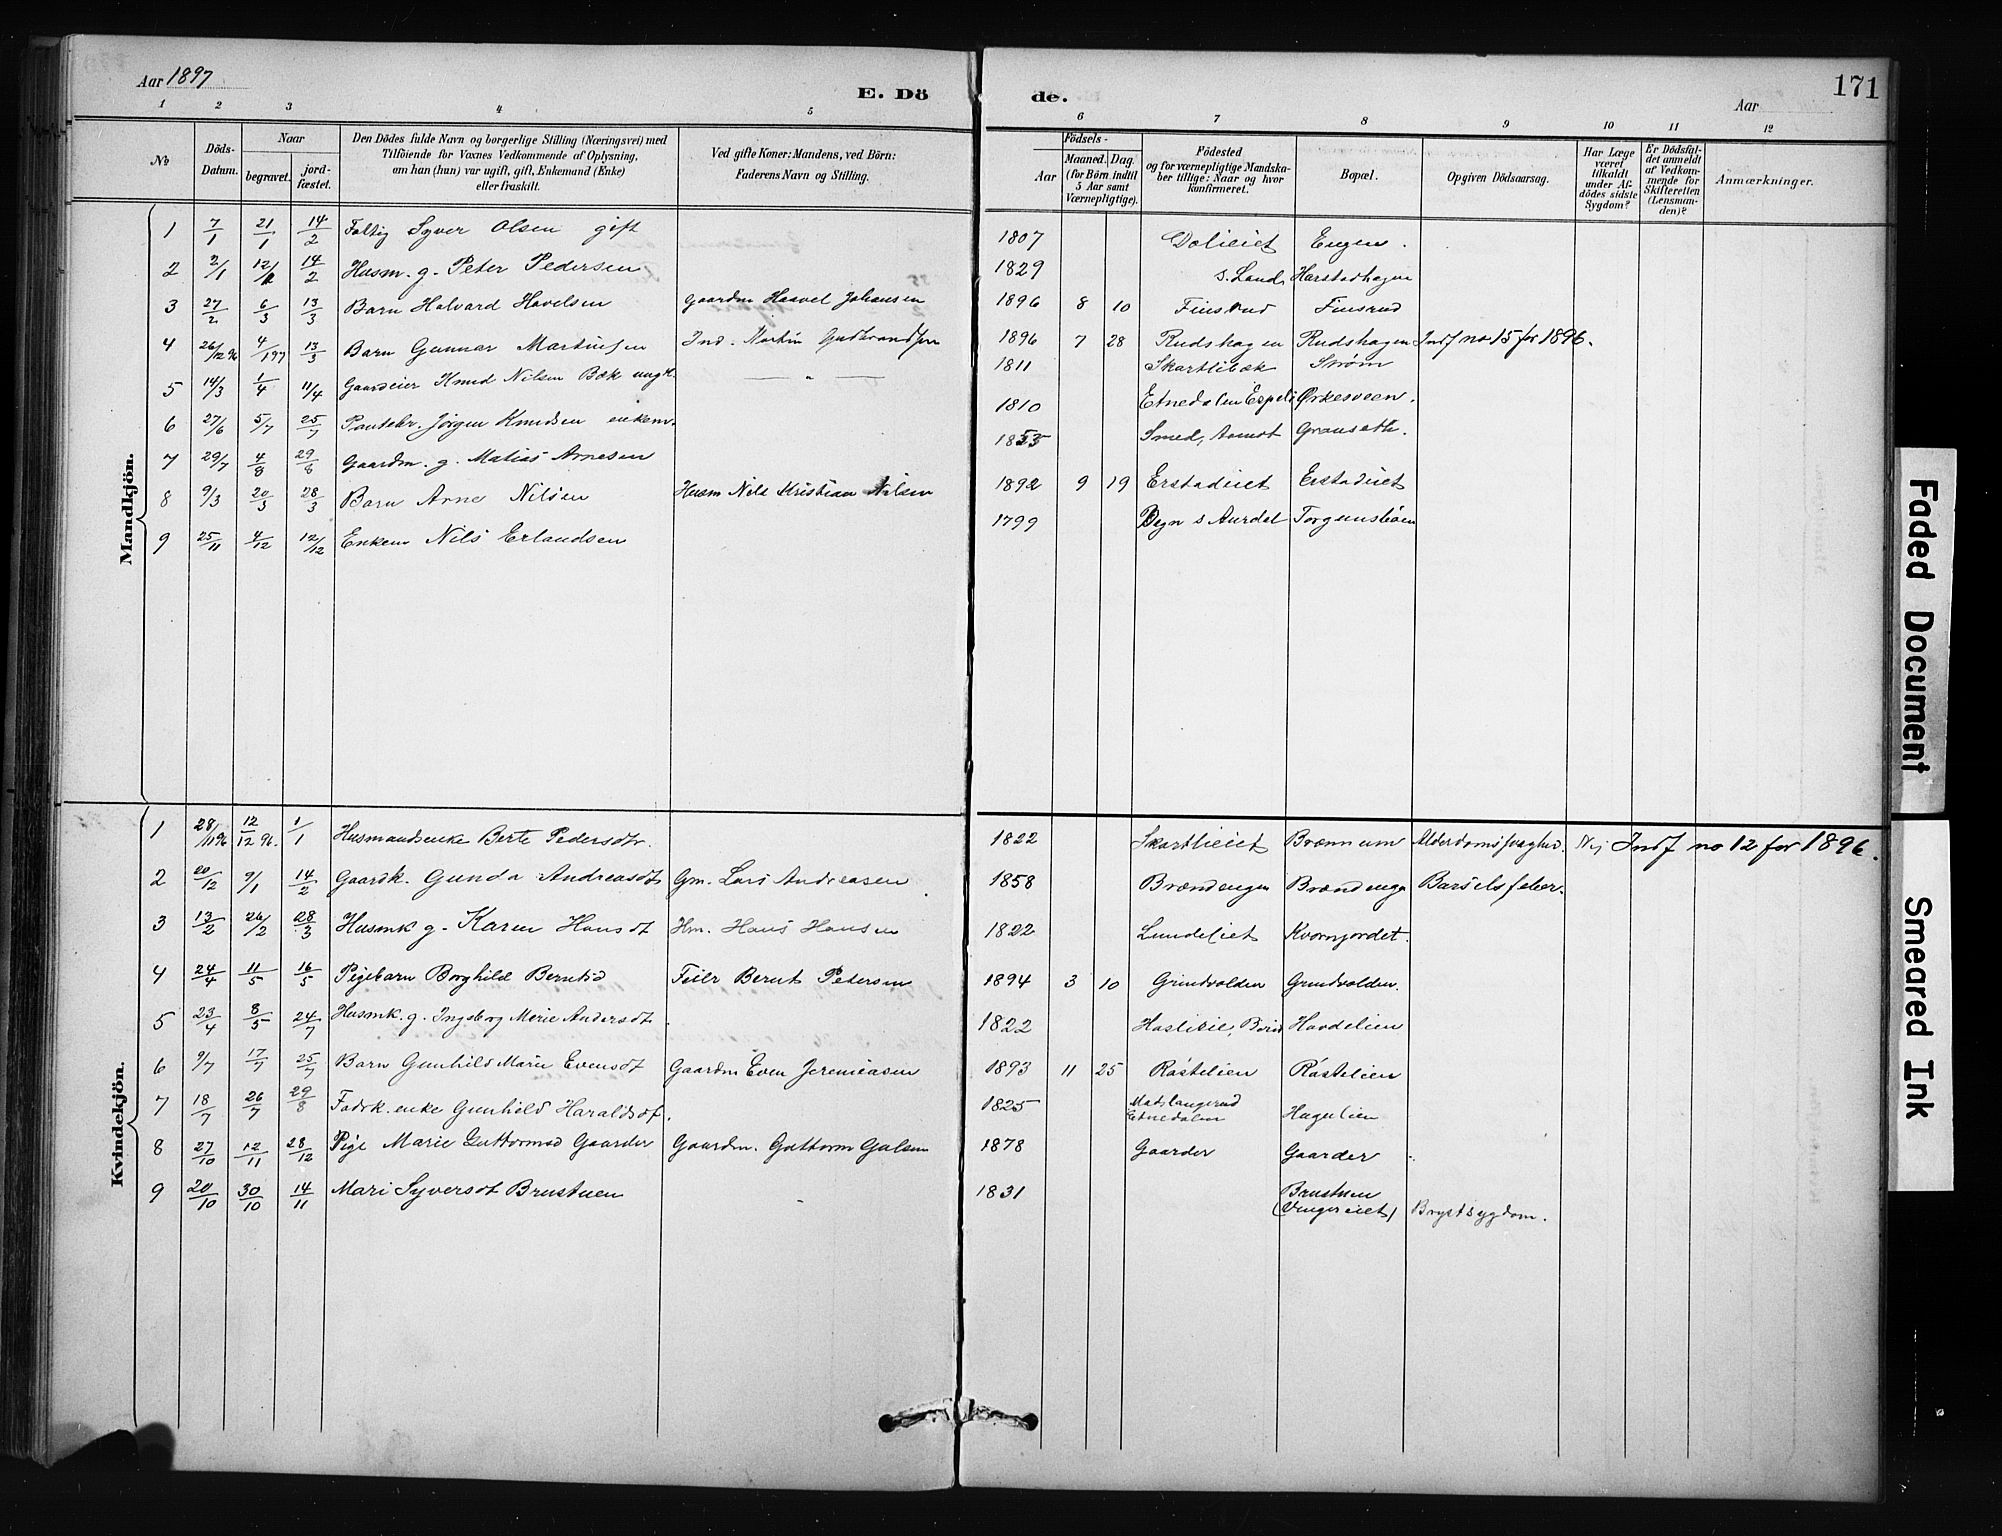 Aar 1897
E. Dö
de.
Aar
171
1 2 3 4 5 6 7 8 9 10 11 12
No
Döds-
Datum.
Naar
begravet.
jord-
fæstet.
Den Dödes fulde Navn og borgerlige Stilling (Næringsvei) med
Tilföiende for Voxnes Vedkommende af Oplysning,
om han (hun) var ugift, gift, Enkemand (Enke)
eller fraskilt.
Ved gifte Koner: Mandens, ved Börn:
Faderens Navn og Stilling.
Födsels-
Aar
Maaned. Dag.
(for Börn indtil
5 Aar samt
Værnepligtige).
Födested
og for værnepligtige Mandska-
ber tillige: Naar og hvor
konfirmeret.
Bopæl.
Opgiven Dödsaarsag.
Har Læge
været
tilkaldt
under Af-
dödes sidste
Sygdom?
Er Dödsfal-
det anmeldt
af Vedkom-
mende for
Skifteretten
(Lensman-
den)?
Anmærkninger.
Mandkjön.
1 7/1 21/1 14/2 Faltig Syver Olsen gift 1807 Dalieiet Engen.
2 2/1 12/1 14/2 Husm. g. Peter Pedersen 1829 S. Land Harstadhagen
3 27/2 6/3 13/3 Barn Halvard Havelsen gaardm Haavel Johansen 1896 8 10 Finsrud Finsrud
4 26/12 96 4/1 97 13/3 Barn Gunnar Martinsen Ind. Martin Gudbrandsen 1896 7 28 Rudshagen Rudshagen Indf no 15 for 1896.
5 14/3 1/4 11/4 Gaardeier Knud Nilsen Bæk ungk. — " — 1811 Skartlibæk Strøm
6 27/6 5/7 25/7 Jörgen Knudsen enkem. 1810 Etnedalen Espeli Ørkesveen.
7 29/7 4/8 29/8 Gaardm. g. Matias Arnesen 1853 Smed, Granseth.
8 9/3 20/3 28/3 Barn Arne Nilsen Husm Nils Kristian Nilsen 1892 9 19 Erstadeiet Erstadeiet
9 25/11 4/12 12/12 Enkem Nils Erlandsen 1799 Begn S Aurdal
Kvindekjön.
1 28/11 96 12/12 96. 1/1 Husmandsenke Berte Pedersdtr. 1822 Skartlieiet Brænnum Alderdomssvaghed. Nej Indf no 12 for 1896.
2 20/12 9/1 14/2 Gaardk. Gunda Andreasdt Gm. Lars Andreasen 1858 Brændengen Brændenge Barselsfeber.
3 13/2 26/2 28/3 Husmk g. Karen Hansdt Hm. Hans Hansen 1822 Lundeeiet Kvornjordet.
4 24/4 11/5 16/5 Pigebarn Borghild Berntsd Bernt Petersen 1894 3 10 Grindvolden Grindvolden.
5 23/4 8/5 24/7 Husmk. g. Ingeborg Marie Andersdt. 1822 Havdelien
6 9/7 17/7 25/7 Barn Gunhild Marie Evensdt Gaardm Even Jeremiasen 1893 11 25 Røstelien Røstelien
7 18/7 26/7 29/8 enke Gunhild Haraldsdt. 1825 Madslangrud
Etnedalen Hagelien
8 27/10 12/11 28/12 Pige Marie Guttormsd Gaarder Gaardm. Guttorm Galsen 1878 Gaarder Gaarder
9 20/10 30/10 14/11 Mari Syversdt Brustuen 1831 Brustuen
(Vengereiet) Brystsygdom.
Faded Document
Smeared Ink